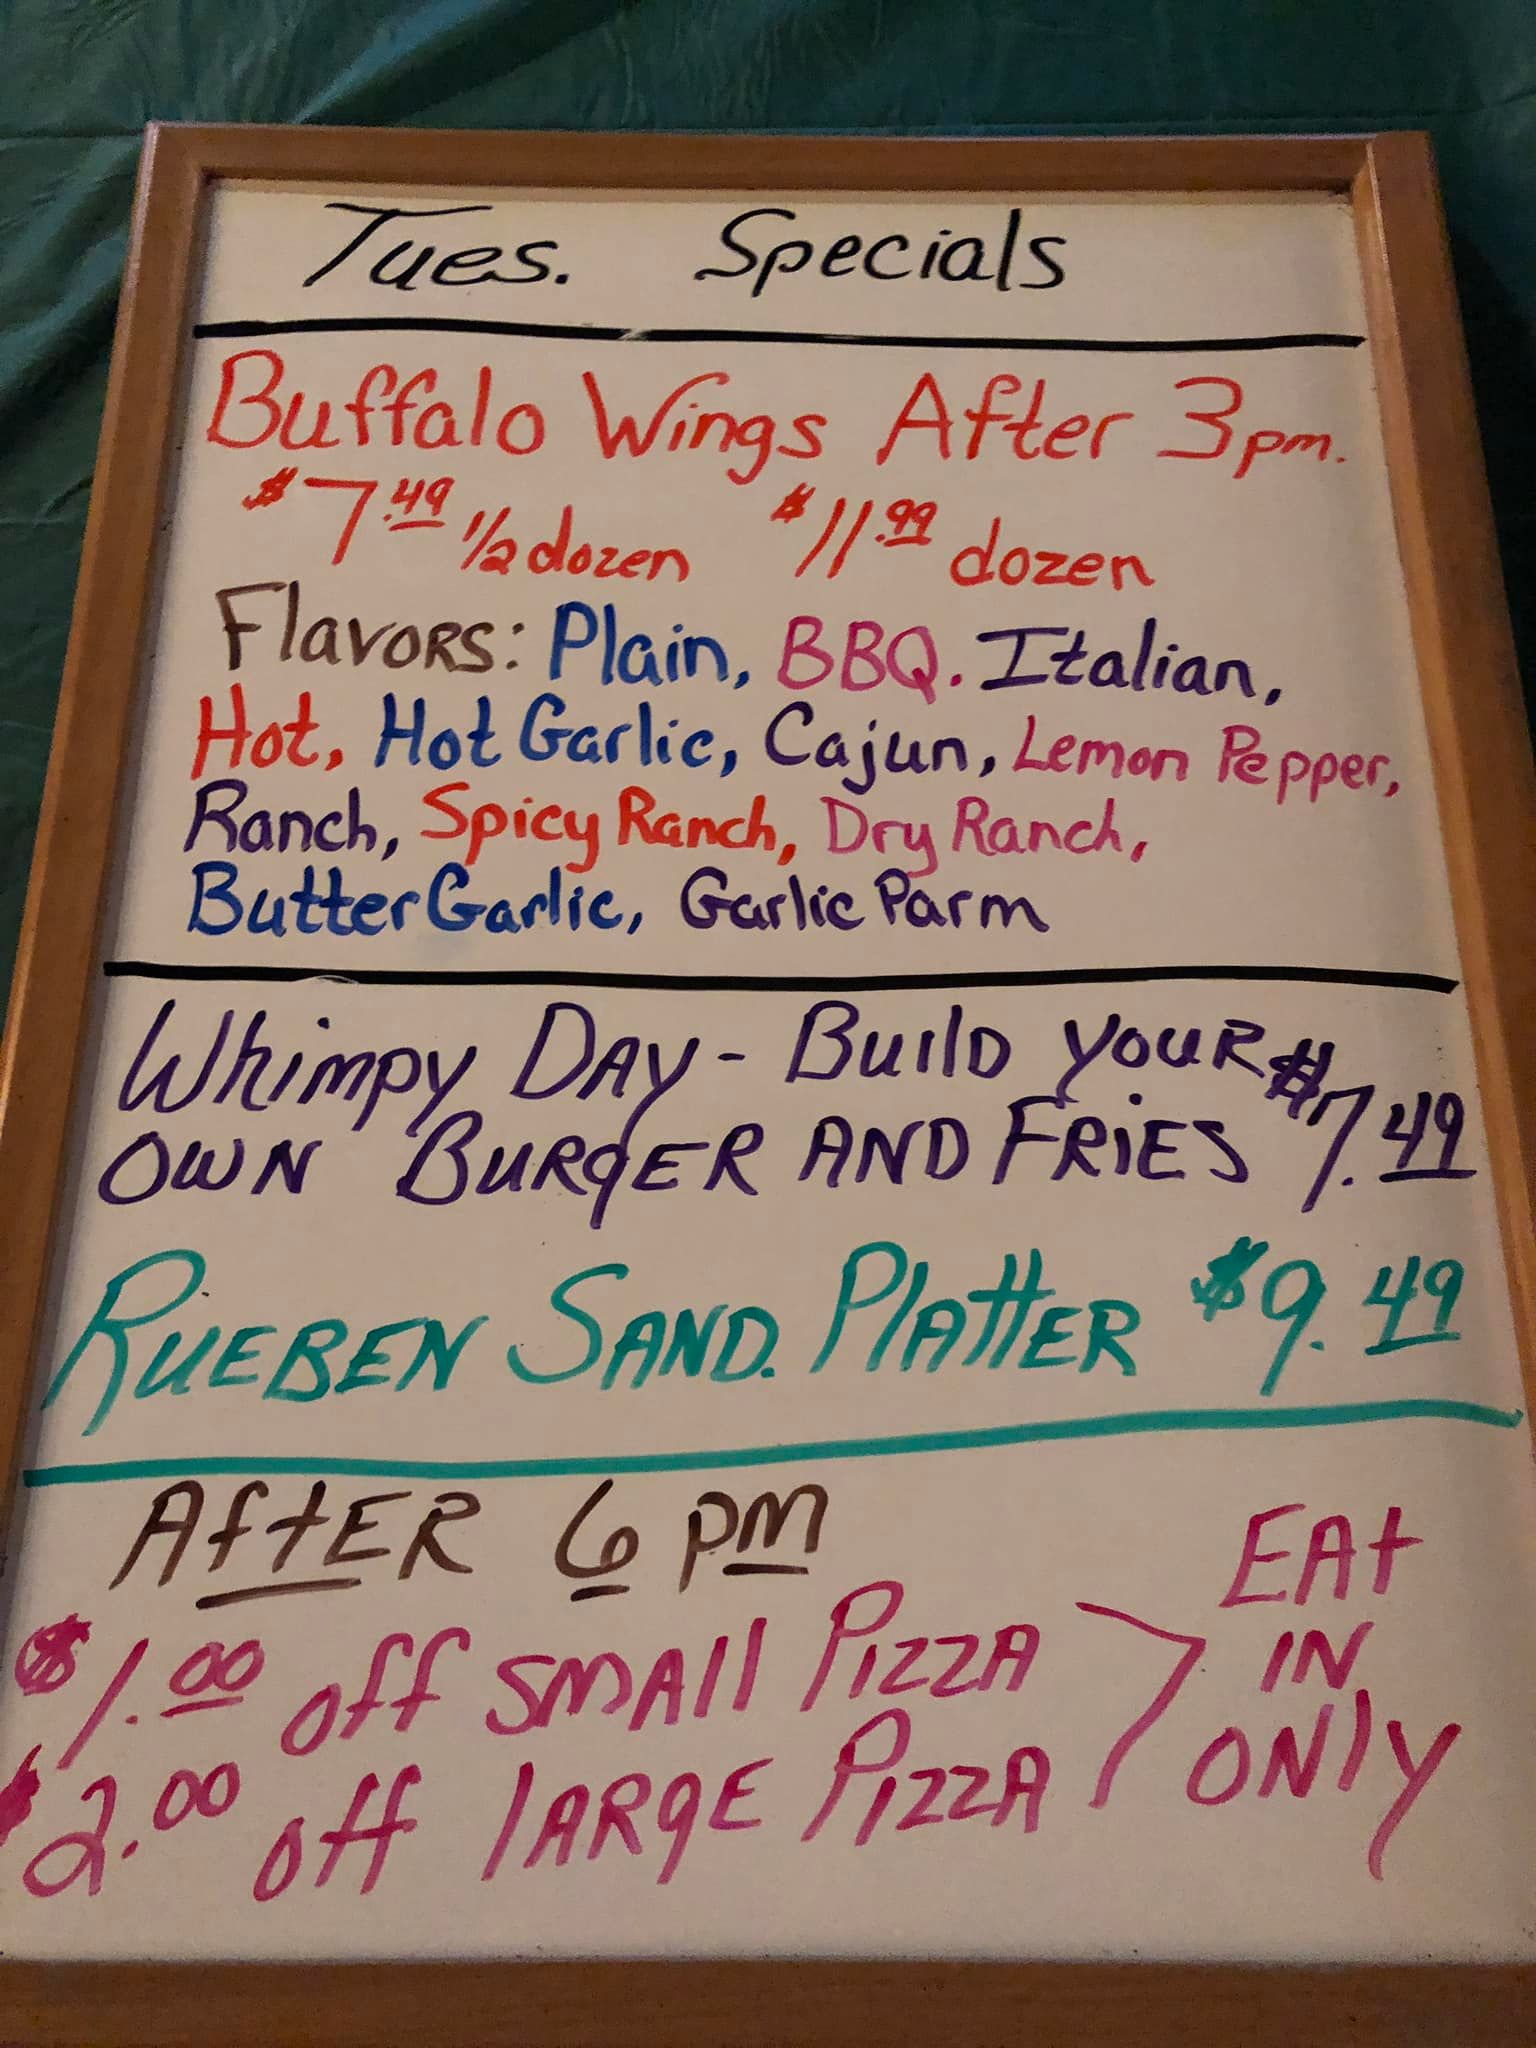 Tues. Specials
Buffalo Wings After 3pm.
$7.49 1/2 dozen $11.99 dozen
Flavors: Plain, BBQ. Italian,
Hot, Hot Garlic, Cajun, Lemon Pepper,
Ranch, Spicy Ranch, Dry Ranch,
Butter Garlic, Garlic Parm
Whimpy DAy - Build your
own Burger AND FRiES $7.49
RUEBEN SAND. PlAttER $9.49
AftER 6 pm
$1.00 off SMAll PizzA
$2.00 off lARgE PizzA
EAt
IN
ONly